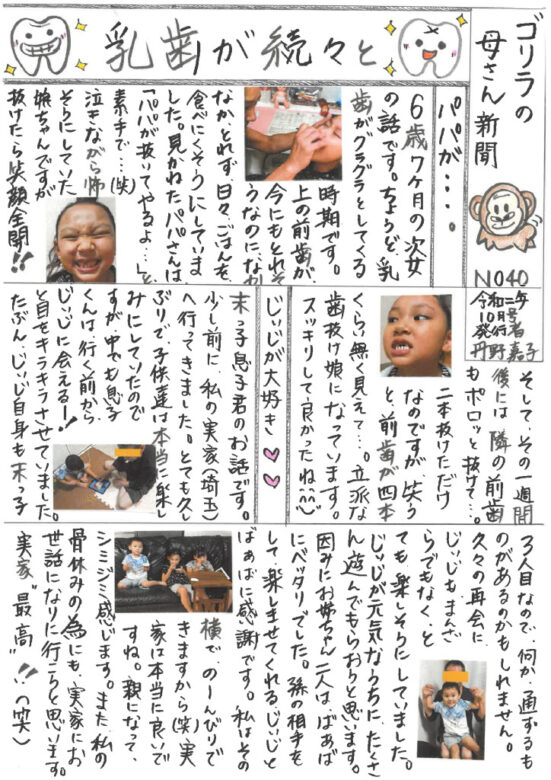 ゴリラの
母さん新聞
NO40
令和二年
10月号
発行者
丹野嘉子
乳歯が続々と
パパが・・・。
6歳7ケ月の次女
の話です。ちょうど乳
歯がグラグラとしてくる
時期です。
上の前歯が、
今にもとれそ
うなのに、なか
なか、とれず、日々、ごはんを
食べにくそうにしていま
した。見かねたパパさんは
「パパが抜いてやるよ…」と
素手で…(笑)
泣きながら怖
そうにしていた
娘ちゃんですが
抜けたら笑顔全開!!
そして、その一週間
後には隣の前歯
もポロッと抜けて…。
二本抜けただけ
なのですが、笑う
と前歯が四本
くらい無く見えて…。立派な
歯抜け娘になっています。
スッキリして良かったね(^^)
じぃじが大好き♡♡
末っ子息子君のお話です。
少し前に、私の実家(埼玉)
へ行ってきました。とても久し
ぶりで、子供達は本当に楽し
みにしていたので
すが、中でも息子
くんは、行く前から
じぃじに会えるー!
と目をキラキラさせていました。
たぶん、じぃじ自身も末っ子
3人目なので、何か、通ずるも
のがあるのかもしれません。
久々の再会に、
じぃじもまんざ
らでもなく、と
ても楽しそうにしていました。
じぃじが元気なうちに、たくさ
ん遊んでもらおうと思います。
因みにお姉ちゃん二人は、ばぁば
にベッタリでした。孫の相手を
して楽しませてくれる、じぃじと
ばぁばに感謝です。私はその
横で、のーんびりで
きますから(笑)実
家は本当に良いで
すね。親になって、
シミジミ感じます。また、私の
骨休みの為にも、実家にお
世話になりに行こうと思います。
実家"最高"!!の笑)